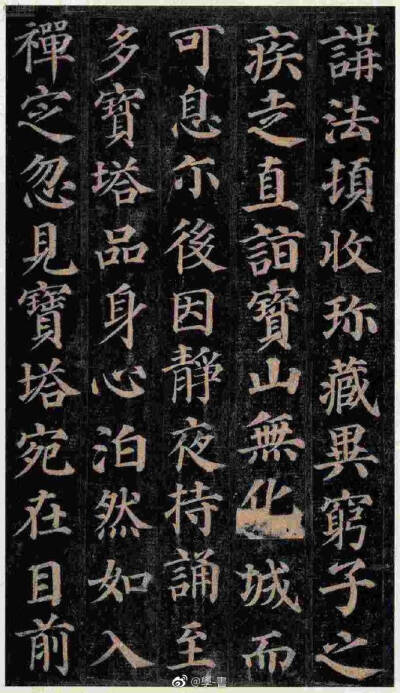 講法頂收珎藏異窮子之
疾走直詣寶山無化城而
可息尒後因靜夜持誦至
多寶塔品身心泊然如入
禪定忽見寶塔宛在目前
@學-書